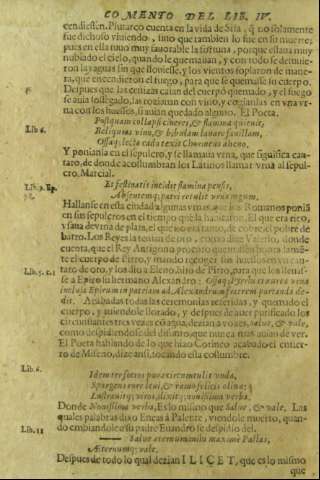 COMENTO DEL LIB. IV.
cendiessen. Plutarco cuenta en la vida de Sila, q̃ no solamente
fue dichoso viuiendo, sino que tambien lo fue en su muerte;
pues en ella tuuo muy fauorable la fortuna, porque estaua muy
nublado el cielo, quando le quemauan, y con todo se detuuie-
ron las aguas sin que llouiesse, y los vientos soplaron de mane-
ra, que encendieron el fuego, para que se quemasse su cuerpo.
Despues que las cenizas caian del cuerpo quemado, y el fuego
se auia sossegado, las rociauan con vino, y cogianlas en vna vr-
na con los huessos, si auian quedado algunos. El Poeta.
Postquam collapsi cineres, & flamma quieuit,
Lib. 6.
Reliquias vino, & bibulam lauere fauillam,
Ossaq; lecta cado texit Chorineus aheno,
Y ponianla en el sepulcro, y se llamaua vrna, que significa can-
taro, de donde acostumbran los Latinos llamar vrna al sepul-
cro. Marcial.
Et festinatis incidet stamina pensis,
Absentemq; patri retulit vrna rogum,
Hallanse en esta ciudad algunas vrnas, que los Romanos ponian
en sus sepulcros en el tiempo que la habitaron. El que era rico,
vsaua de vrna de plata, el que no era tanto, de cobre, el pobre de
barro. Los Reyes la tenian de oro, como dize Valerio, donde
cuenta, que el Rey Antigono
taro de oro, y los dio a Eleno, hijo de Pirro, para que los lleuas-
Lib. 5. c. 1
se a Epiro su hermano Alexandro: Ossaq; Pyrrhi cinctes vrna
inclusa Epirum in patriam ad Alexandrum fratrem portanda de-
dit. Acabadas todas las ceremonias referidas, y quemado el
cuerpo, y auiendole llorado, y despues de auer purificado los
circunstantes tres vezes con agua, dezian a vozes, Salue, & vale,
como despidiendose del difunto, que nunca mas auian de ver.
El Poeta hablando de lo que hizo Corineo acabado el entier-
ro de Miseno, dize ansi, tocando esta costumbre.
Lib. 6.
Idem ter socios pura circumtulit vnda,
Spargens rore leui, & ramo felicis oliuæ;
Lustrauitq; viros, dixitq; nouissima verba,
Donde Nouissima verba, Es lo mismo que Salue, & vale. Las
quales palabras dixo Eneas à Palante, viendole muerto, quan-
do embiandole a su padre Euandro se despidio del.
Lib. 11
Salue æternum mihi maxime Palla,
Æternumq; vale.
Despues de todo lo qual dezian ILICET, que es lo mismo
que